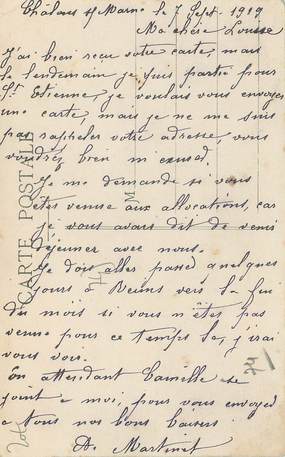 Châlons s/ Marne le 7 Sept. 1919
Ma chère Louise
J'ai bien reçu votre carte, mais
le lendemain je suis partie pour
St. Etienne, je voulais vous envoyer
une carte, mais je ne me suis
pas rappeler votre adresse, vous
voudrez bien m'excuser.
Je me demande si vous
êtes venue aux allocations, car
je vous avais dit de venir
déjeuner avec nous.
Je dois aller passer quelques
jours à vers la fin
du mois si vous n'êtes pas
venue pour ce temps la, j'irai
vous voir.
En attendant Camille se
joint a moi, pour vous envoyer
a tous nos bons baisers
A. Martinet
CARTE POSTALE